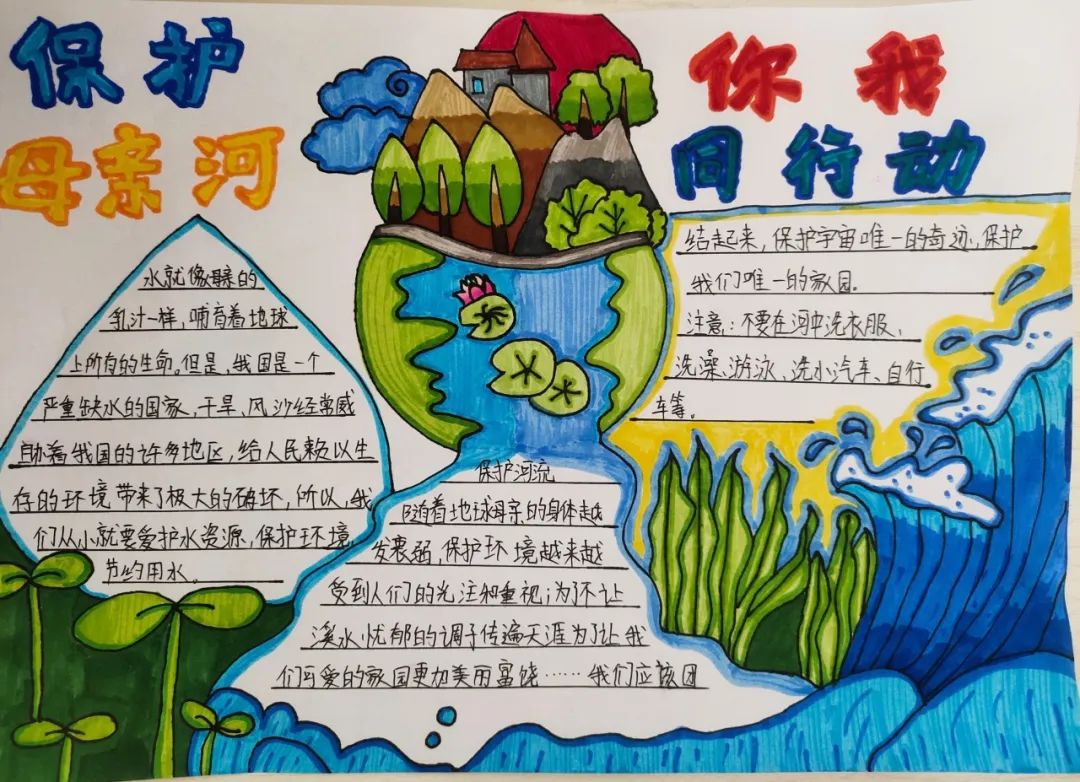 保护
母亲河
你我
同行动
水就像母亲的
乳汁一样，哺育着地球
上所有的生命。但是，我国是一个
严重缺水的国家，干旱、风沙经常威
胁着我国的许多地区，给人民赖以生
存的环境带来了极大的破坏，所以，我
们从小就要爱护水资源，保护环境，
节约用水。
保护河流
随着地球母亲的身体越
发衰弱，保护环境越来越
受到人们的关注和重视；为了不让
溪水忧郁的调子传遍天涯为了让我
们可爱的家园更加美丽富饶……我们应该团
结起来，保护宇宙唯一的奇迹，保护
我们唯一的家园。
注意：不要在河中洗衣服、
洗澡、游泳、洗小汽车、自行
车等。